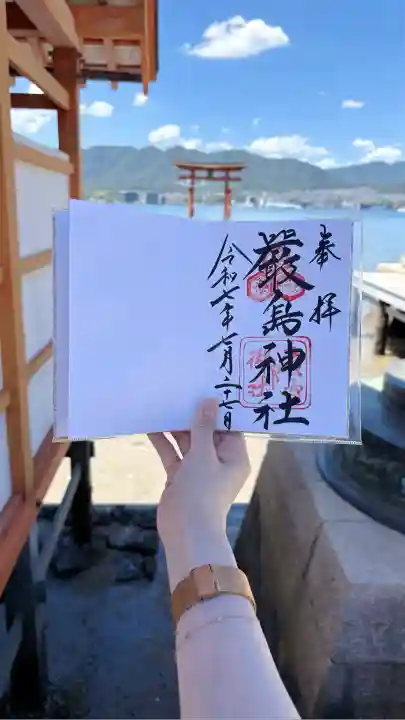 奉拝
厳島神社
令和七年七月二十七日